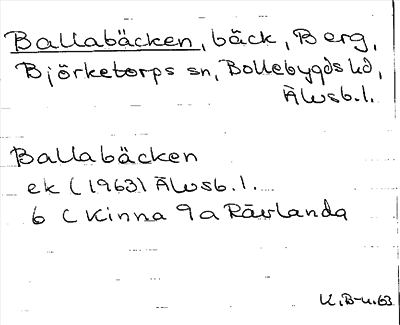 Ballabäcken, bäck, Berg,
Björketorps sn, Bollebygds hd,
Älvsb. l.
Ballabäcken
ek (1963) Älvsb. l.
6 C Kinna 9 a Rävlanda